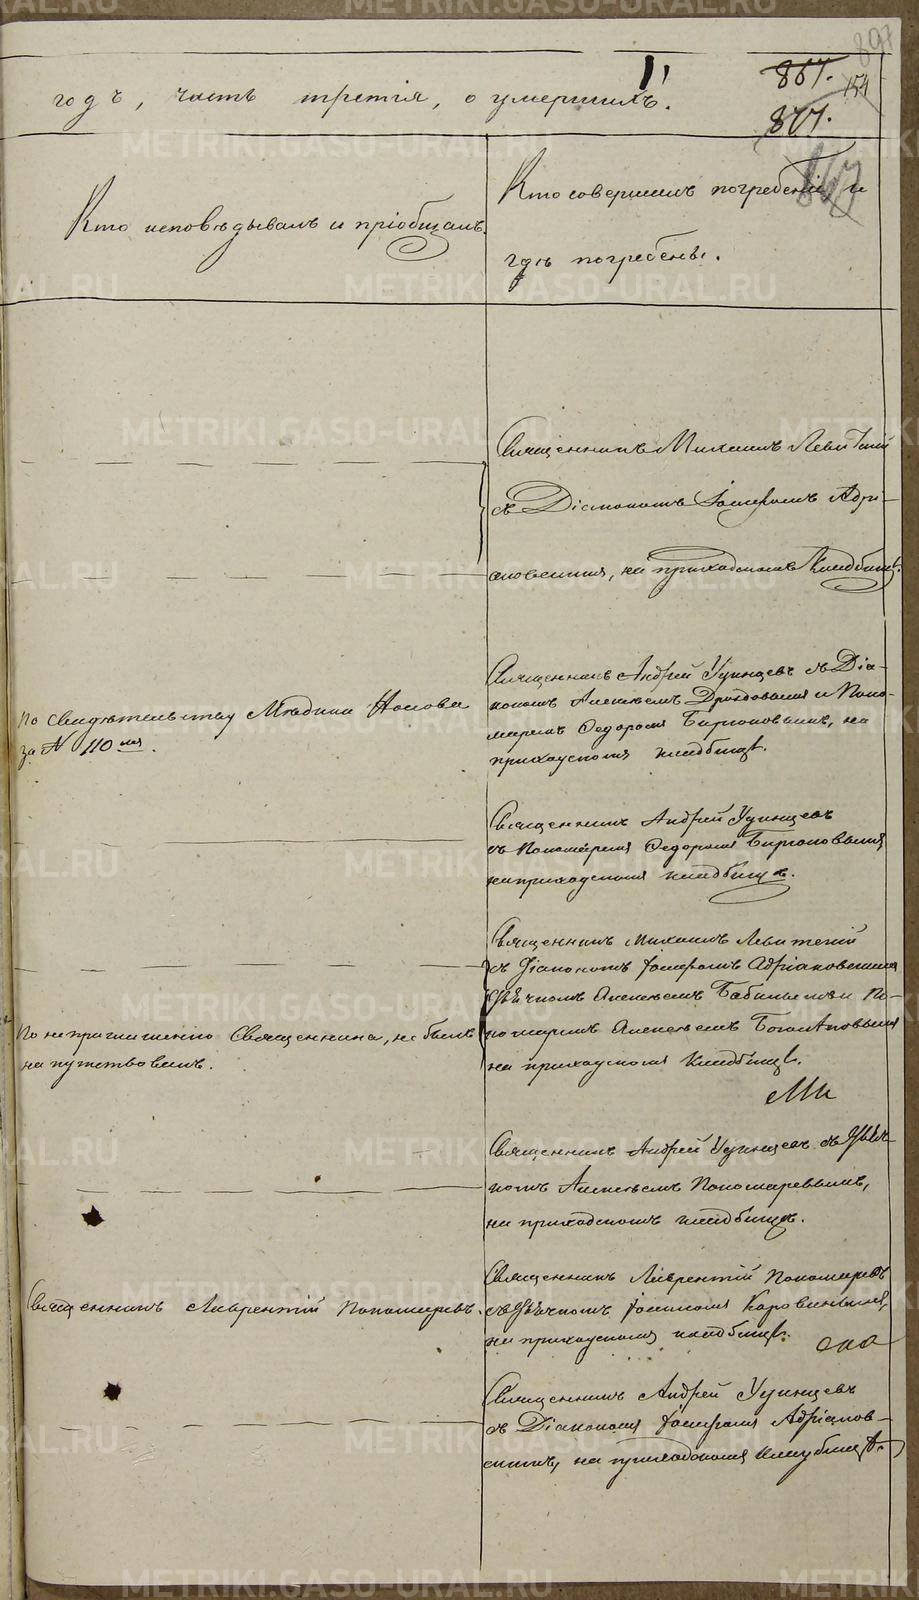 897
годъ, часть третія, о умершихъ.
867.
154
877.
867
Кто исповѣдывалъ и пріобщалъ.
Кто совершалъ погребеніе и
гдѣ погребены.
Священникъ Михаилъ Левитскій
съ Діакономъ Іосифомъ Адрі-
ановскимъ, на приходскомъ кладбищѣ.
По свидѣтельству Медика Носова
за № 110мъ.
Священникъ Андрей Удинцевъ съ Діа-
кономъ Алексѣемъ Дроздовымъ и Поно-
маремъ Ѳедоромъ Бирюковымъ, на
приходскомъ кладбищѣ.
Священникъ Андрей Удинцевъ
съ Пономаремъ Ѳедоромъ Бирюковымъ
на приходскомъ кладбищѣ.
Священникъ Михаилъ Левитскій
съ Діакономъ Іосифомъ Адріановскимъ
Дьячкомъ Алексѣемъ Бабинымъ и По-
номаремъ Алексѣемъ
на приходскомъ кладбищѣ.
По неприглашенію Священника, не былъ
напутствованъ.
Священникъ Андрей Удинцевъ съ Дьяч-
комъ Алексѣемъ Пономаревымъ,
на приходскомъ кладбищѣ.
Священникъ Лаврентій Пономаревъ.
Священникъ Лаврентій Пономаревъ
съ Дьячкомъ Коровинымъ,
на приходскомъ кладбищѣ.
Священникъ Андрей Удинцевъ
съ Діакономъ Іосифомъ Адріанов-
скимъ, на приходскомъ кладбищѣ.
METRIKI.GASO-URAL.RU